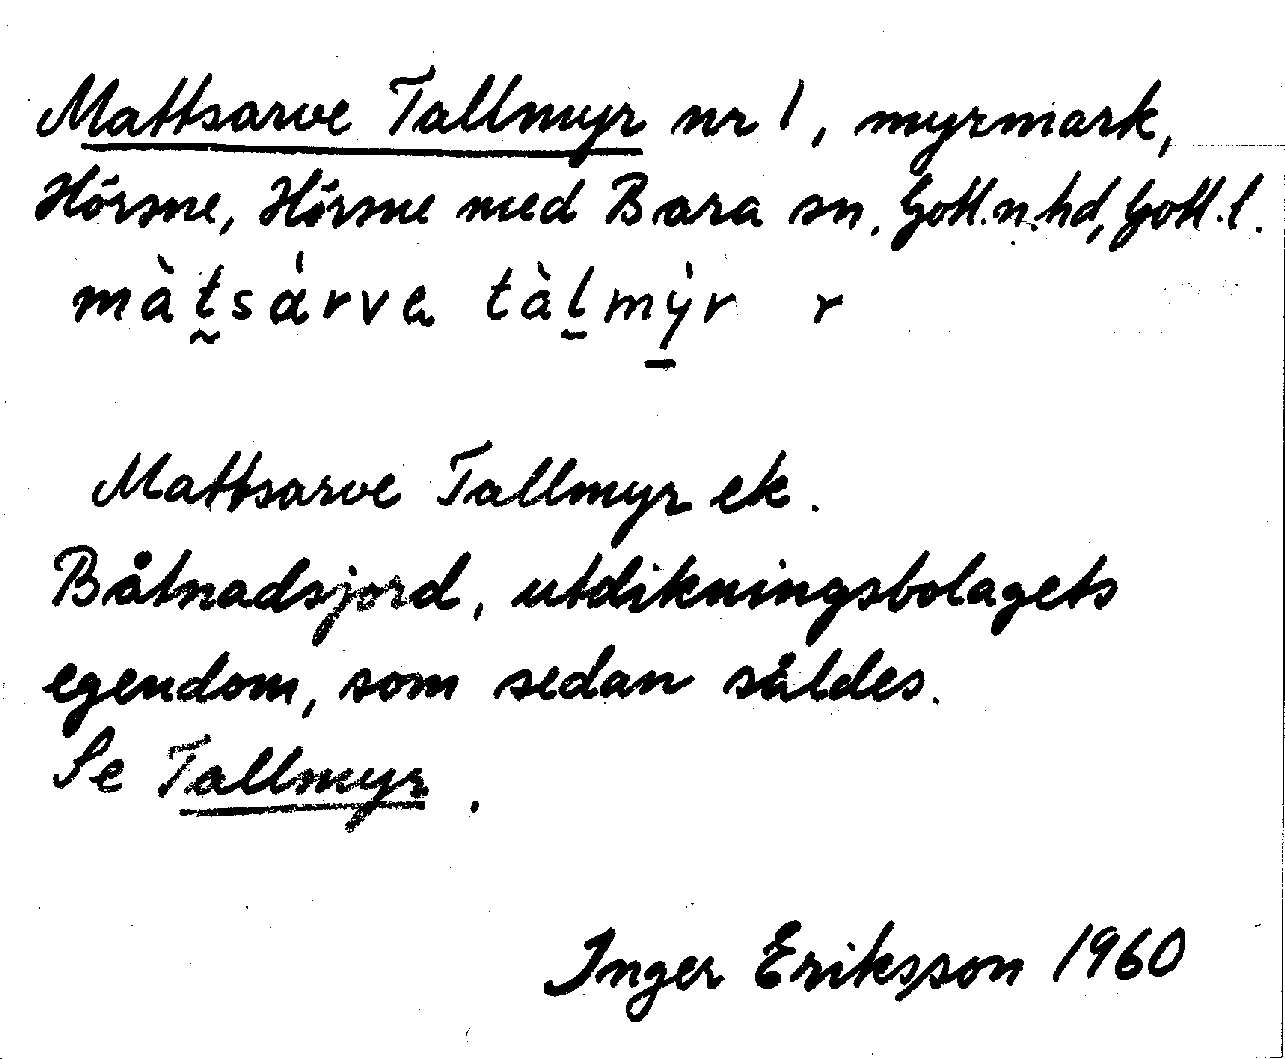 Mattsarve Tallmyr nr 1, myrmark,
Hörsne, Hörsne med Bara sn, Gotl.n.hd, Gotl.l.
màt̰sàrvа tàl̲mẏ̲r r
Mattsarve Tallmyr ek.
Båtnadsjord, utdikningsbolagets
egendom, som sedan såldes.
Se Tallmyr.
Inger Eriksson 1960